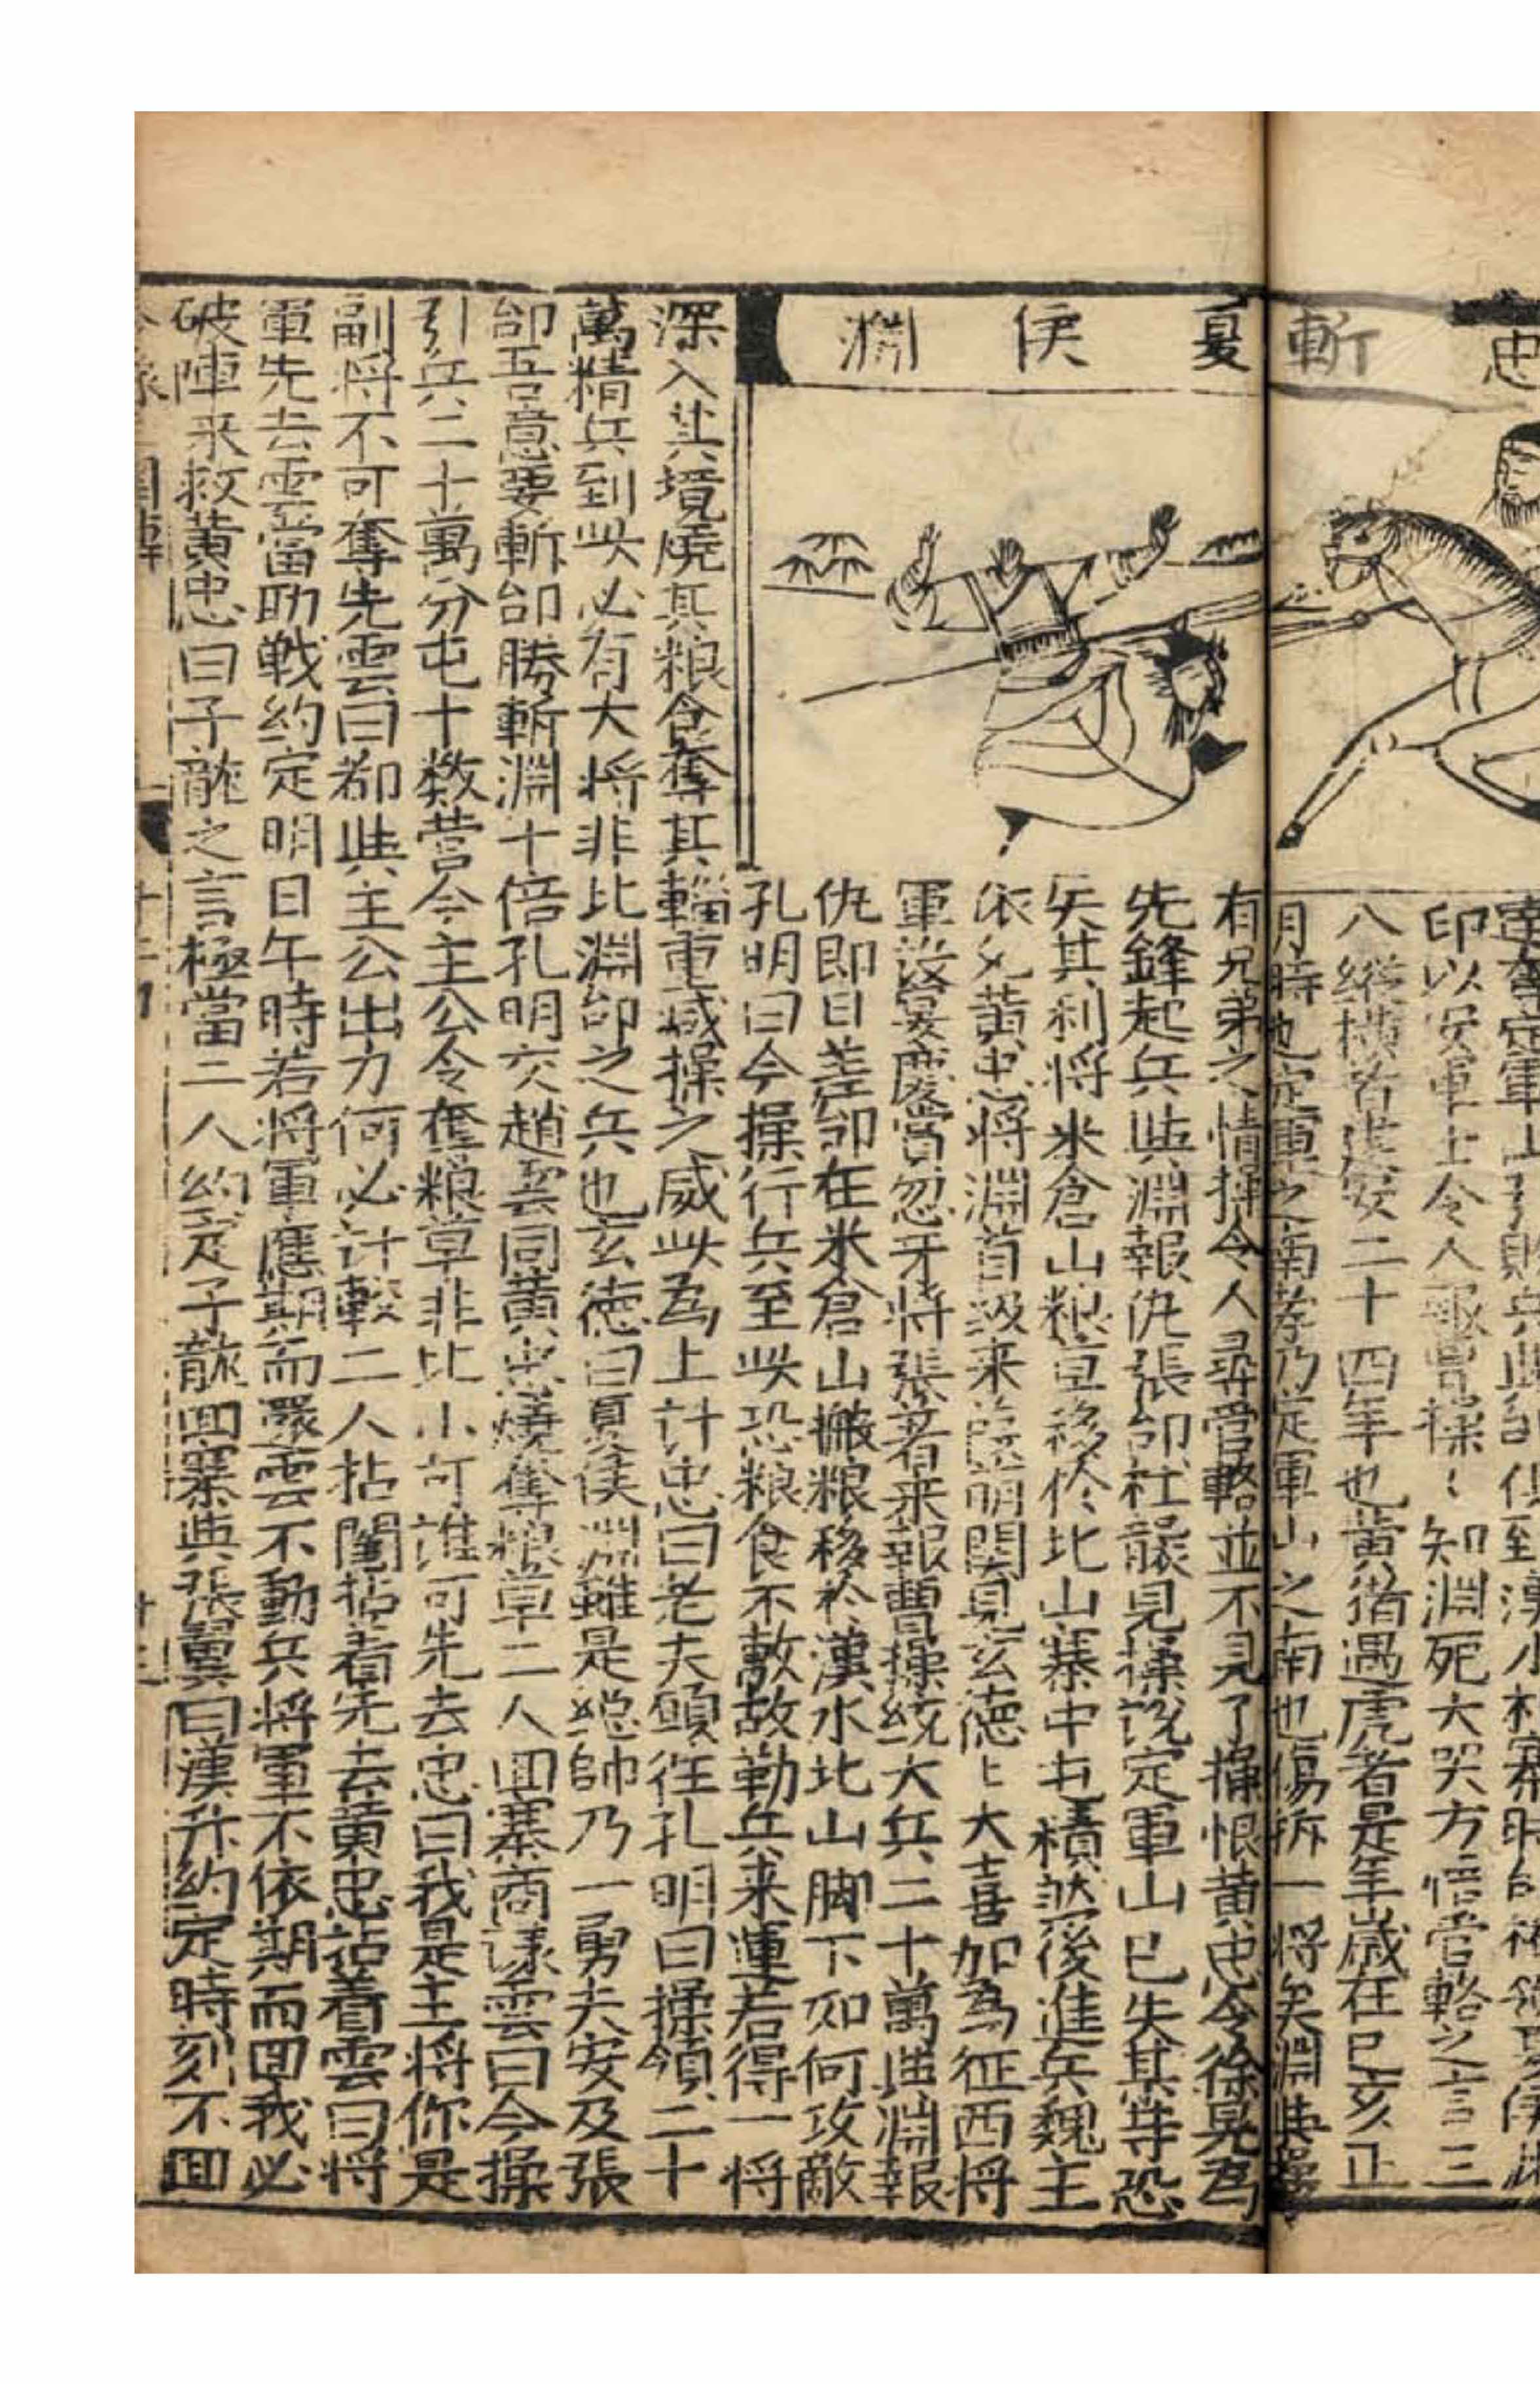 忠
斬
夏侯淵
印以安軍士令人報曹操〻知淵死大哭方悟管輅之言三
八縱橫者建安二十四年也黃猪遇虎者是年歲在己亥正
月時也定軍之南者乃定軍山之南也傷折一將矣淵與操
有兄弟之情操令人尋管輅並不見了操恨黃忠令徐晃為
先鋒起兵與淵報仇張郃杜襲見操說定軍山已失其等恐
失其利將米倉山粮草移於北山寨中屯積然後進兵魏主
依允黃忠將淵首級来葭萌關見玄德〻大喜加為征西將
軍設宴慶賞忽牙將張著来報曹操統大兵二十萬與淵報
仇即日差郃在米倉山搬粮移於漢水北山脚下如何攻敵
孔明曰今操行兵至此恐粮食不敷故勒兵来運若得一將
深入其境燒其粮倉奪其輜重滅操之威此為上計忠曰老夫願往孔明曰操領二十
萬精兵到此必有大將非比淵郃之兵也玄德曰夏侯淵雖是總帥乃一勇夫安及張
郃吾意要斬郃勝斬淵十倍孔明交趙雲同黃忠燒奪粮草二人囬寨商議雲曰今操
引兵二十萬分屯十数营今主公令奪粮草非比小可誰可先去忠曰我是主將你是
副將不可奪先雲曰都與主公出力何必計較二人拈鬮拈着先去黃忠拈着雲曰將
軍先去雲當助戰約定明日午時若將軍應期而還雲不動兵將軍不依期而囬我必
破陣来救黃忠曰子龍之言極當二人約定子龍囬寨與張翼曰漢升約定時刻不囬